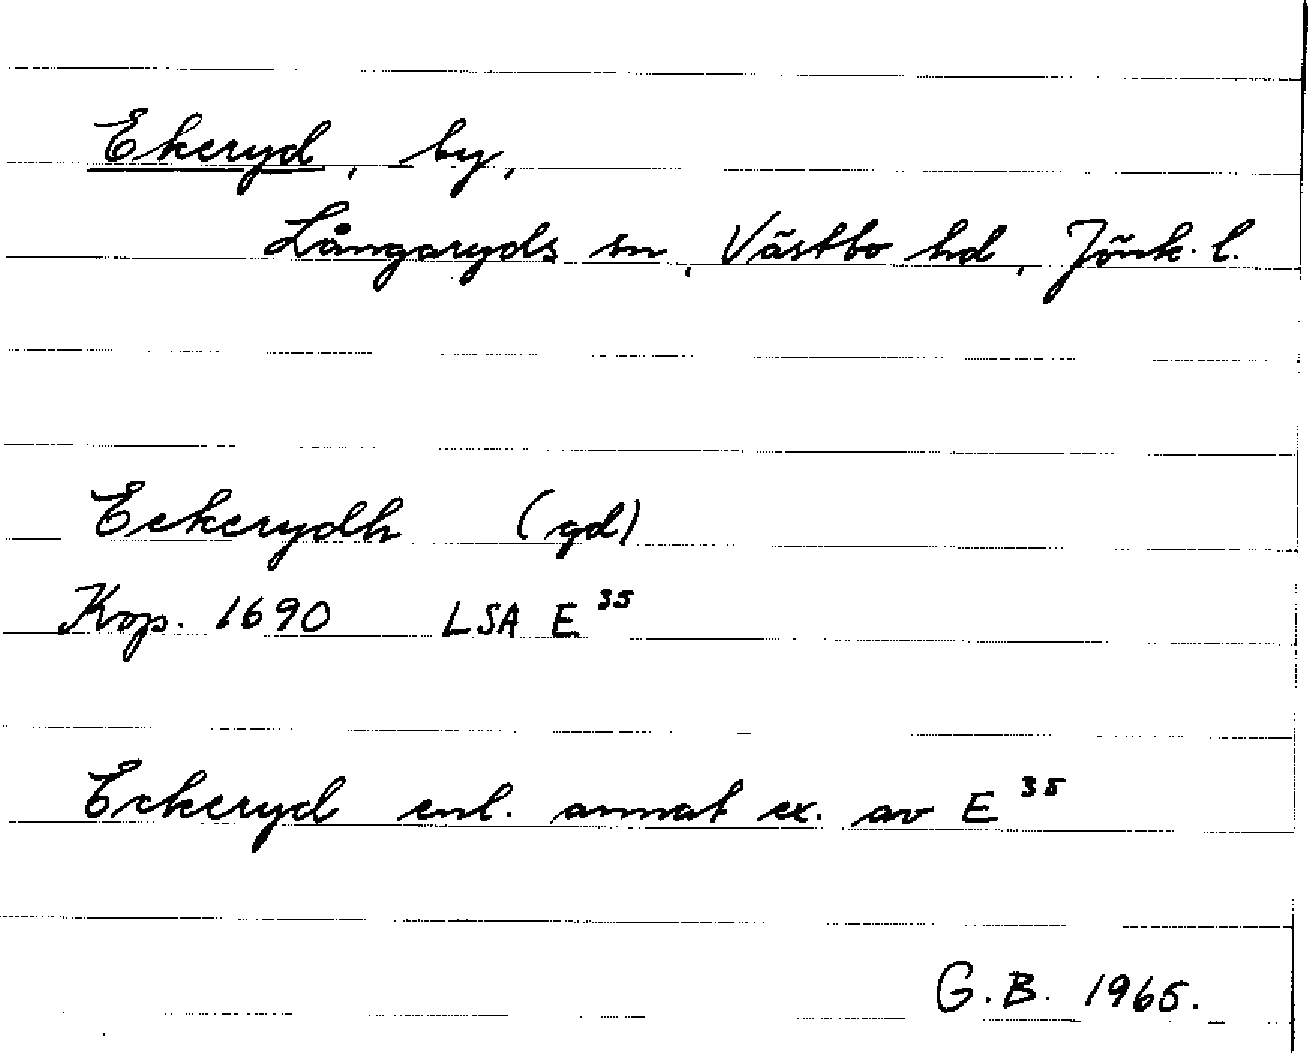 Ekeryd, by,
Långaryds sn, Västbo hd, Jönk. l.
Eckerydh (gd)
Kop. 1690 LSA E 35
Eckeryd enl. annat ex. av E 35
G.B. 1965.